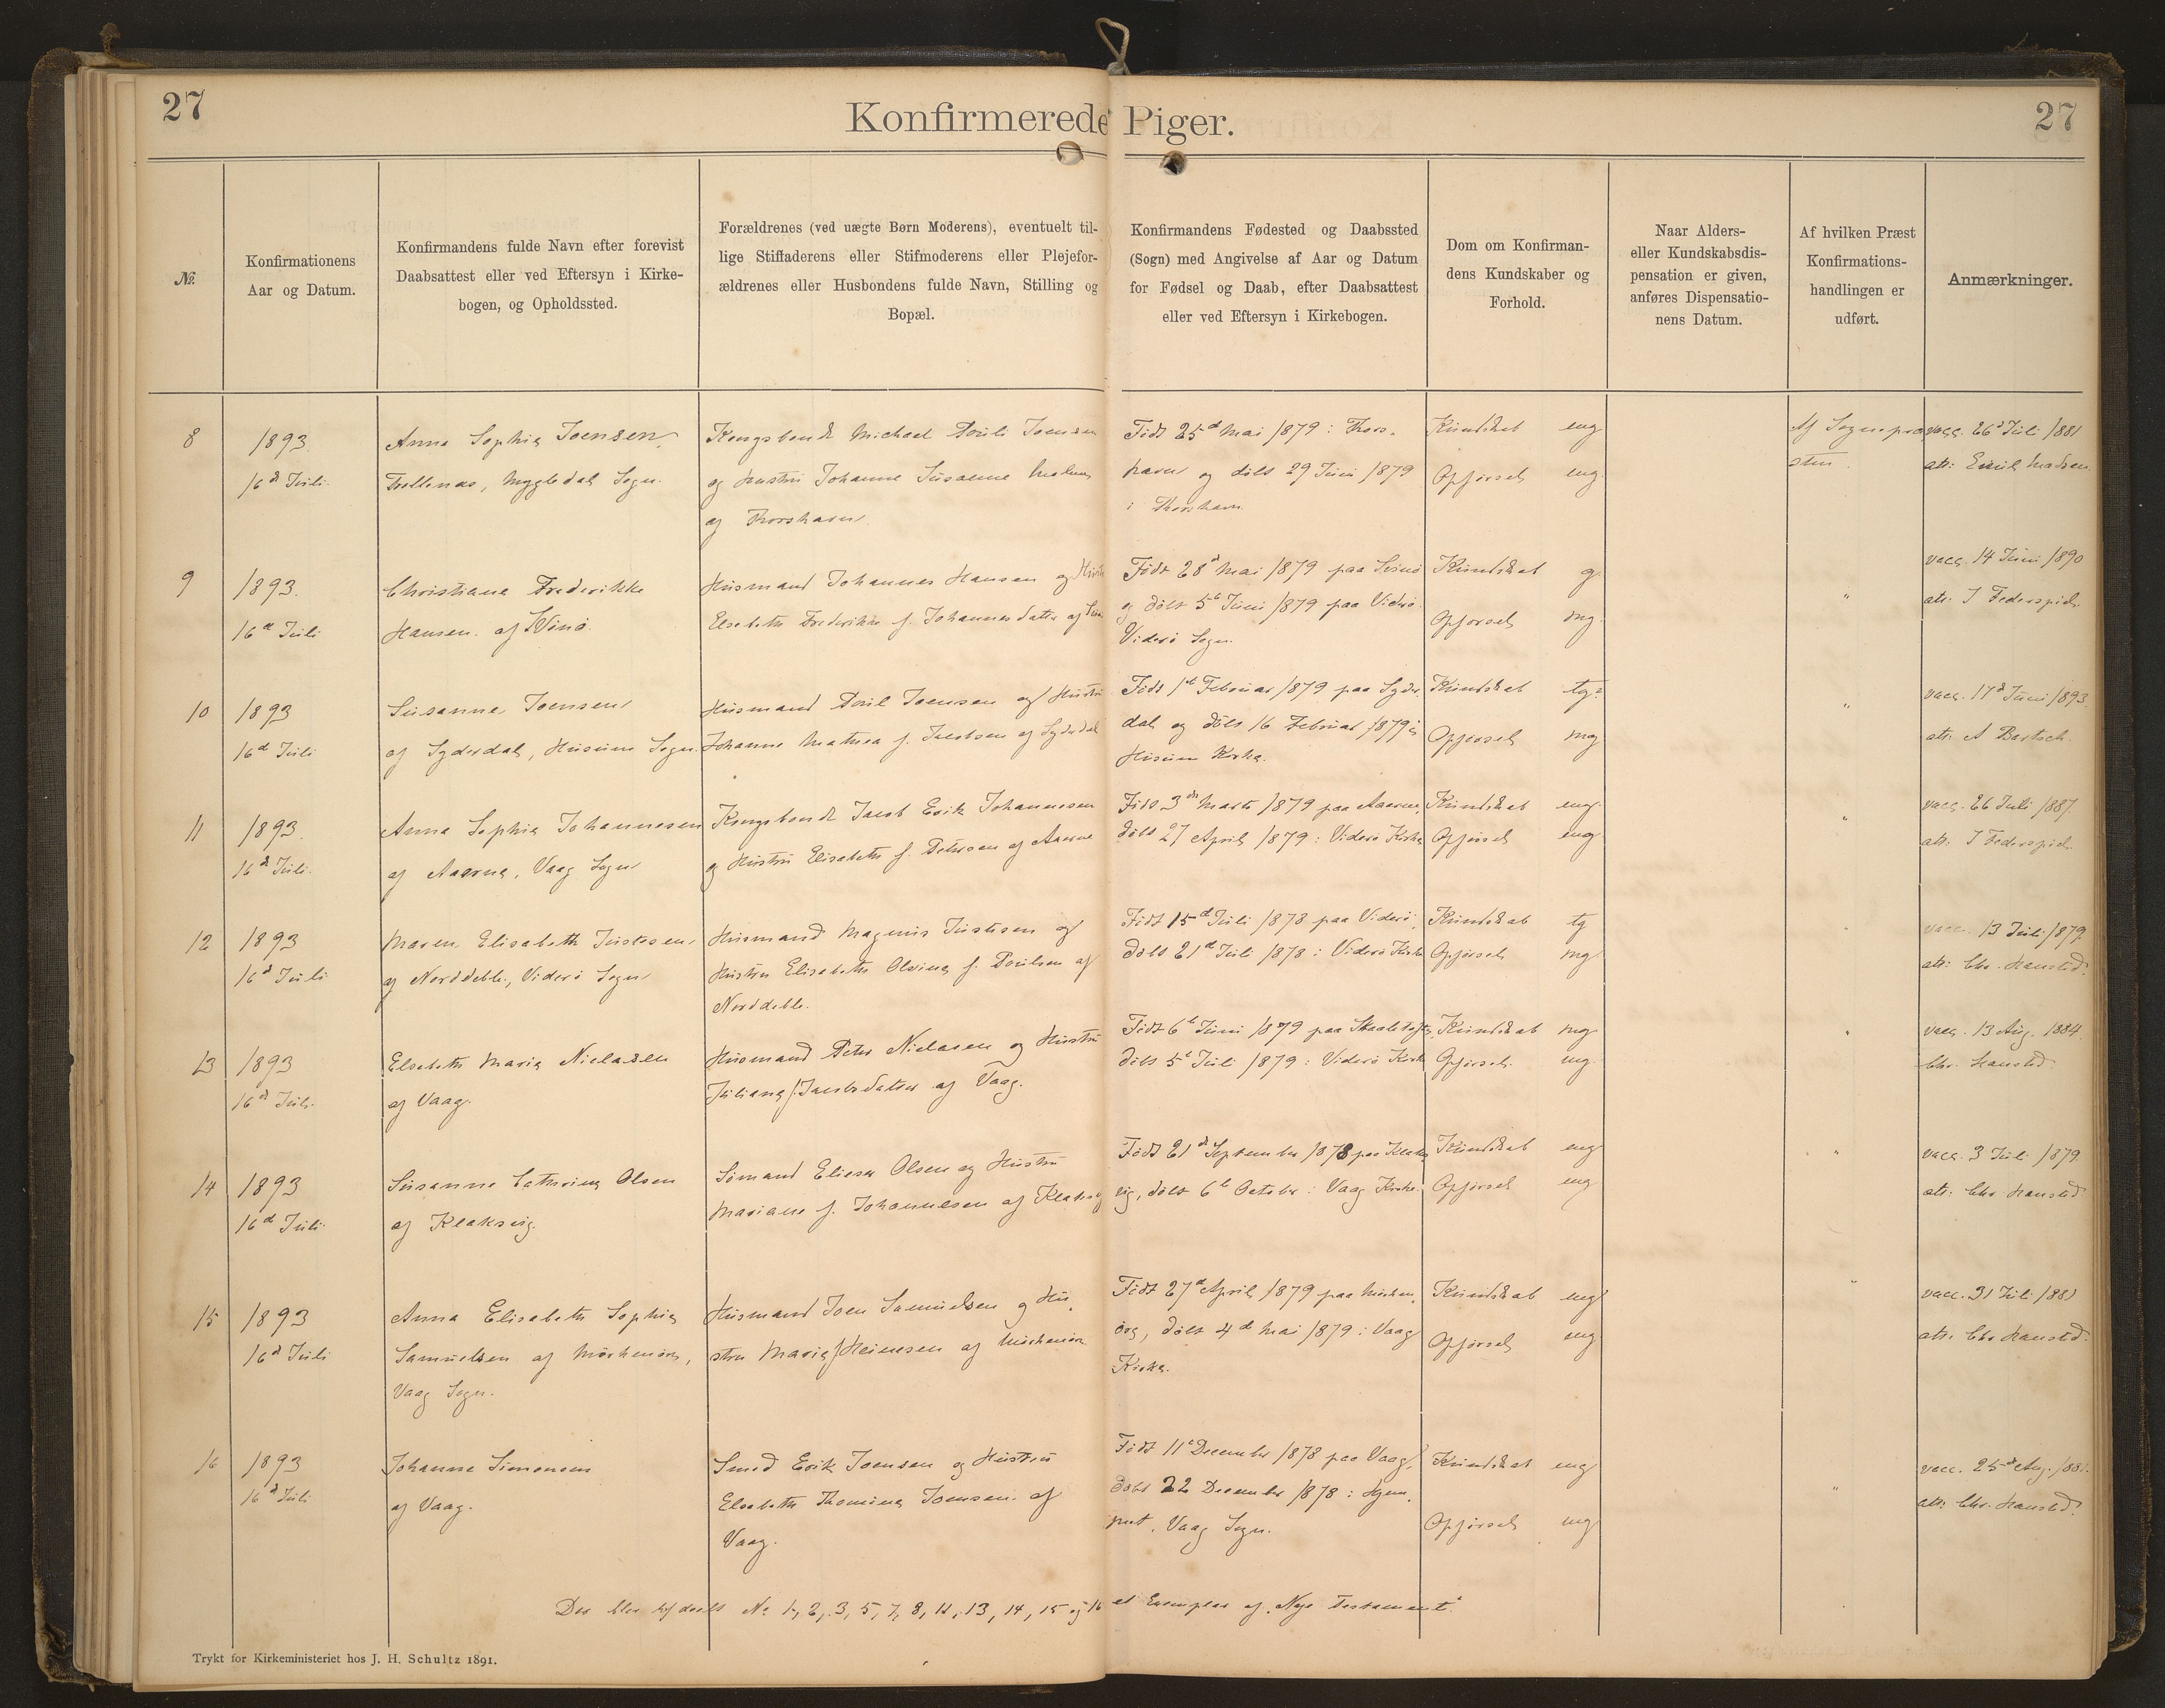 27
Konfirmerede Piger.
27
№.
Konfirmationens
Aar og Datum.
Konfirmandens fulde Navn efter forevist
Daabsattest eller ved Eftersyn i Kirke-
bogen, og Opholdssted.
Forældrenes (ved uægte Børn Moderens), eventuelt til-
lige Stiffaderens eller Stifmoderens eller Plejefor-
ældrenes eller Husbondens fulde Navn, Stilling og
Bopæl.
Konfirmandens Fødested og Daabssted
(Sogn) med Angivelse af Aar og Datum
for Fødsel og Daab, efter Daabsattest
eller ved Eftersyn i Kirkebogen.
Dom om Konfirman-
dens Kundskaber og
Forhold.
Naar Alders-
eller Kundskabsdis-
pensation er given,
anføres Dispensatio-
nens Datum.
Af hvilken Præst
Konfirmations-
handlingen er
udført.
Anmærkninger.
8
1893.
16d Juli.
Anna Sophia Joensen
Trellenæs, Mygledal Sogn.
Kongsbonde Michael Poul Joensen
og Hustru Johanne Susanne
af Thorshavn
Født 25d Mai 1879 i Thors-
havn og døbt 29 Juni 1879
i Thorshavn
Kundskab mg
Opførsel mg
Af Sognepræ-
sten
vacc. 26d Juli 1881
att: Emil Madsen
9
1893.
16d Juli
Christiane Frederikke
Hansen af Svinø.
Husmand Johannes Hansen og Hustru
Elsebeth Frederikke f. Johannesdatter af
Født 28d Mai 1879 paa Svinø
og døbt 5t Juni 1879 paa Viderø
Viderø Sogn.
Kundskab g.
Opførsel mg.
"
vacc. 14 Juni 1890
att: J Federspiel.
10
1893
16d Juli
Susanne Joensen
af Syderdal, Husum Sogn.
Husmand Poul Joensen og Hustru
Johanne Mathea f. Jacobsen af Syderdal
Født 1t Februar 1879 paa Syder-
dal og døbt 16 Februar 1879 i
Husum Kirke.
Kundskab tg?
Opførsel mg
"
vacc. 17d Juni 1893.
att: A Bartsch.
11
1893.
16d Juli.
Anna Sophia Johannesen
af Aaerne, Vaag Sogn
Kongsbonde Jacob Erik Johannesen
og Hustru Elisabeth f. Petersen af Aaerne
Født 3die Marts 1879 paa Aaerne,
døbt 27 April 1879 i Viderø Kirke
Kundskab mg.
Opførsel mg
"
vacc. 26 Juli 1887.
att: J Federspiel.
12
1893
16d Juli
Maren Elisabeth Justesen,
af Norddeble, Viderø Sogn
Husmand Magnus Justesen og
Hustru Elisabeth Olevina f. Poulsen af
Norddeble.
Født 15d Juli 1878 paa Viderø,
døbt 21d Juli 1878 i Viderø Kirke
Kundskab tg
Opførsel mg
"
vacc. 13 Juli 1879.
att: Chr. Hansted.
13
1893
16d Juli.
Elsebeth Maria Nielasen
af Vaag.
Husmand Peter Nielasen og Hustru
Juliana f. Jacobsdatter af Vaag.
Født 6t Juni 1879 paa Skaaletofte,
døbt 5t Juli 1879 i Viderø Kirke
Kundskab mg
Opførsel. mg.
"
vacc. 13 Aug. 1884.
Chr. Hansted.
14
1893
16d Juli
Susanne Cathrina Olsen
af Klaksvig.
Sømand Elieser Olsen og Hustru
Mariane f. Johannesen af Klaksvig
Født 21d September 1878 paa Klaks-
vig, døbt 6t October i Vaag Kirke.
Kundskab mg
Opførsel mg
"
vacc. 3 Juli 1879
att: Chr Hansted
15
1893
16d Juli
Anna Elisabeth Sophia
Samuelsen af Mørkenøre,
Vaag Sogn.
Husmand Joen Samuelsen og Hu-
stru Maria f. Heinesen af Mørkenøre
Født 27d April 1879 paa Mørken-
øre, døbt 4d Mai 1879 i Vaag
Kirke.
Kundskab mg
Opførsel mg
"
vacc. 31 Juli 1881
att: Chr Hansted.
16
1893
16d Juli
Johanne Simonsen
af Vaag.
Smed Erik Joensen og Hustru
Elsebeth Thomina Joensen af
Vaag.
Født 11t December 1878 paa Vaag,
døbt 22 December 1878 i Hjem-
met, Vaag Sogn.
Kundskab mg
Opførsel mg
"
vacc. 25d Aug. 1881.
att: Chr. Hansted.
Der blev uddeelt No 1, 2, 3, 5, 7, 8, 11, 13, 14, 15 og 16 et Exemplar af „Nye Testament“
Trykt for Kirkeministeriet hos J. H. Schultz 1891.